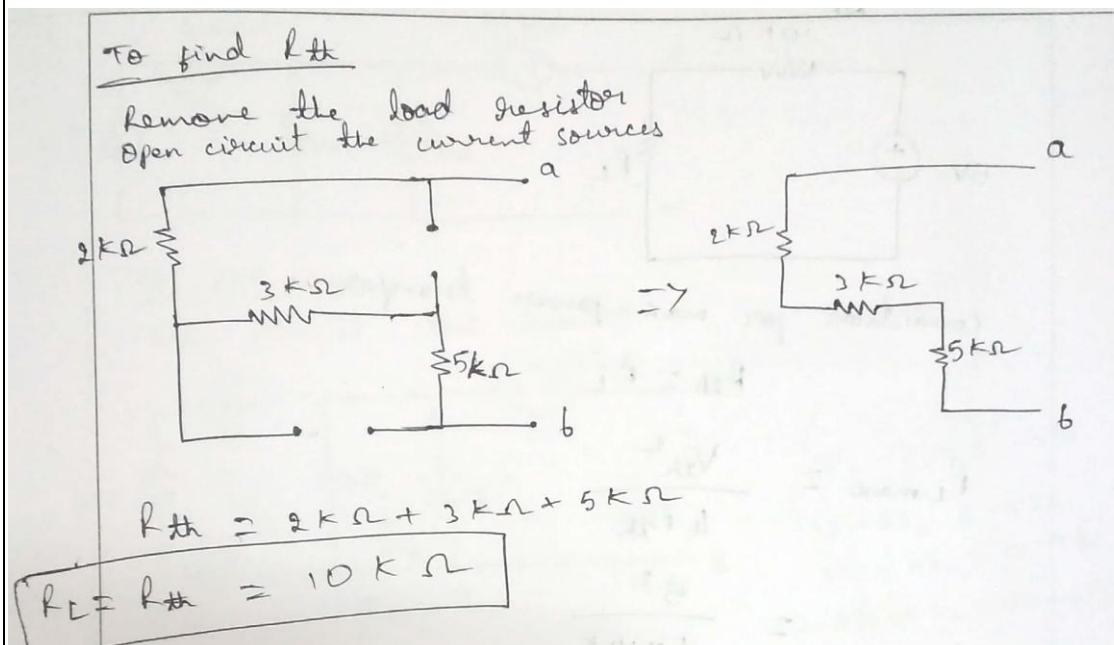 To find Rth
Remove the load resistor
open circuit the current sources
a
2KΩ
3KΩ
5kΩ
b
=>
a
2KΩ
3KΩ
5KΩ
b
Rth = 2KΩ + 3KΩ + 5KΩ
RL = Rth = 10KΩ